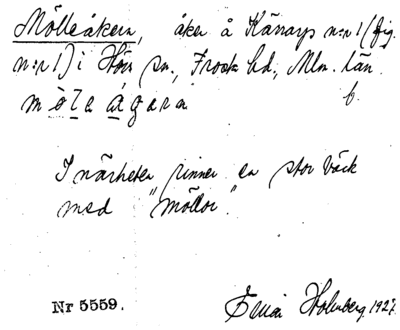 Mölleåkern, åker å Känarp n:r 1 (fig.
n:r 1) i Hörs sn., Frosta hd., Mlm. län.
mö̀lea ágara f.
I närheten rinner en stor bäck
med "möllor".
Nr 5559. Holmberg 1927.